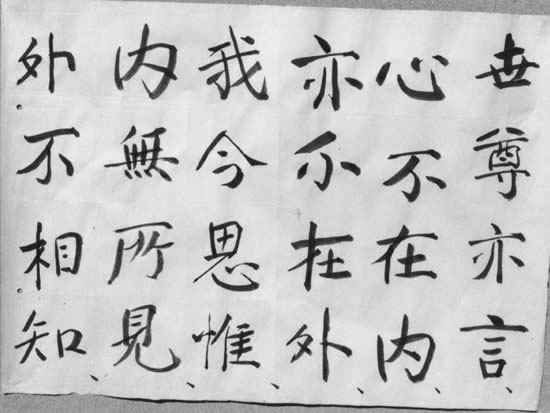 世尊亦言、
心不在内、
亦不在外、
我今思惟、
内無所見、
外不相知、